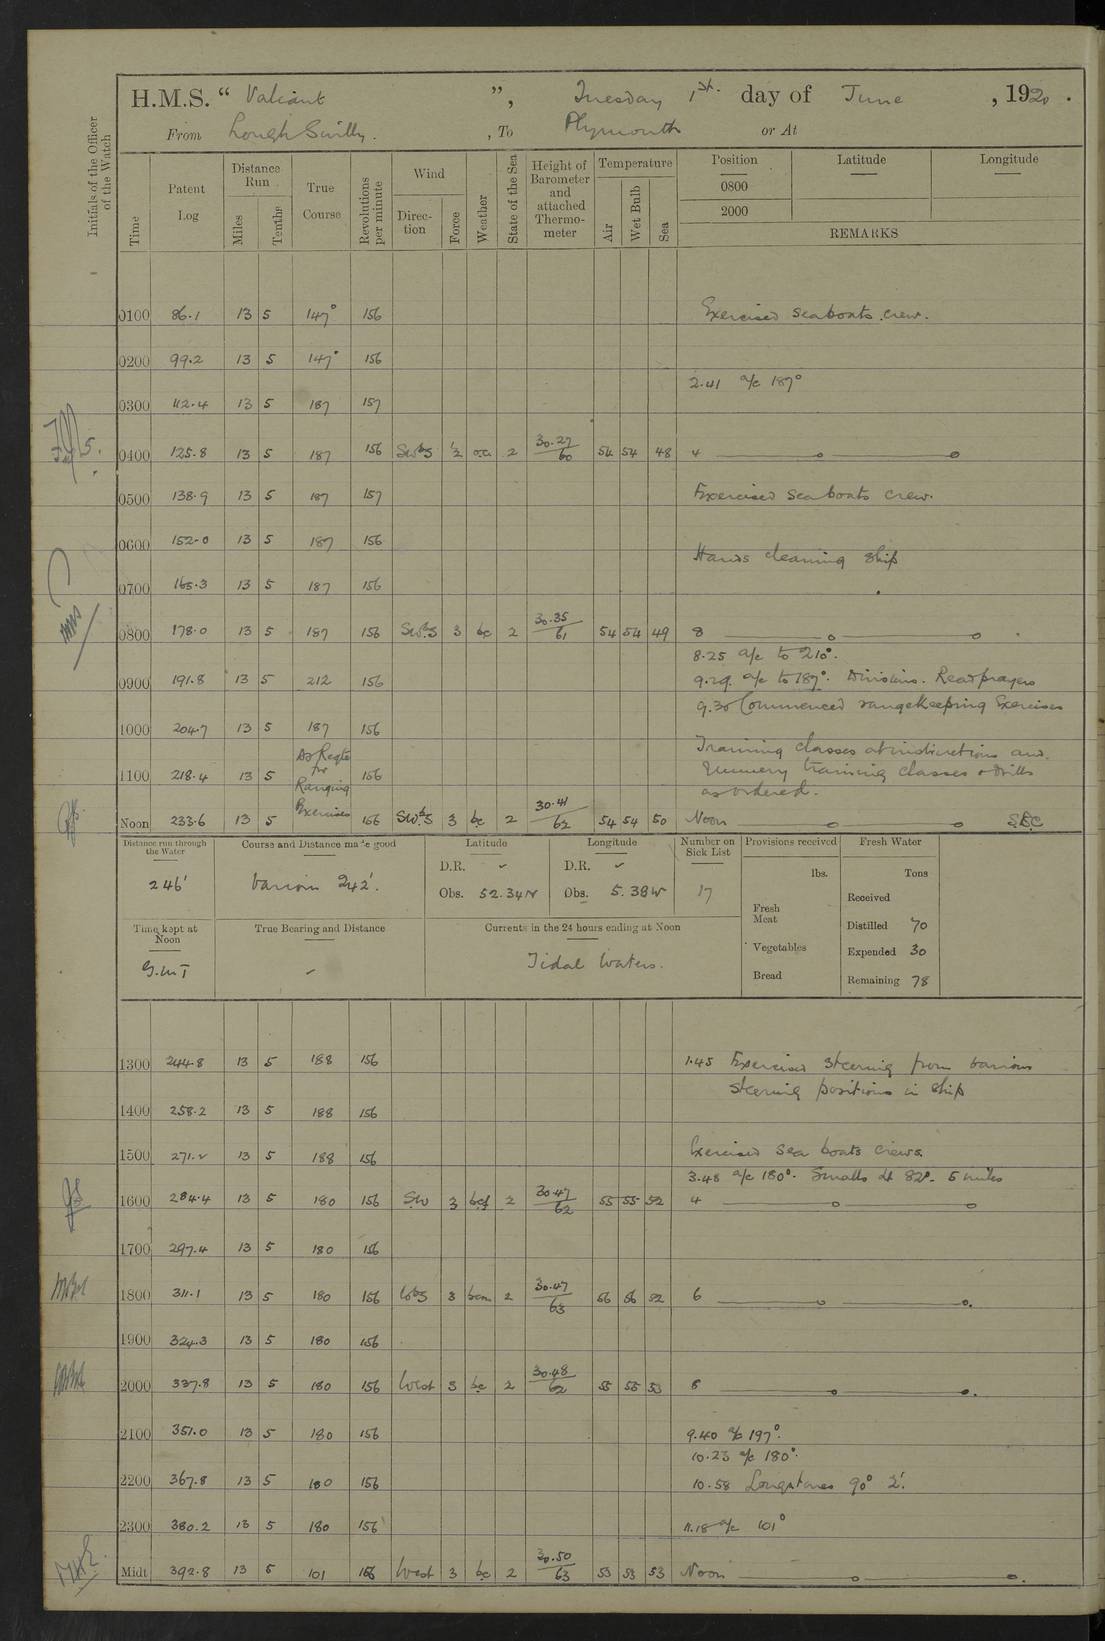 H.M.S. “ Valiant ”, Tuesday 1st. day of June , 1920 .
From Lough Swilly. , To Plymouth or At
Initials of the Officer of the Watch
Time
Patent Log
Distance Run
Miles
Tenths
True Course
Revolutions per minute
Wind
Direction
Force
Weather
State of the Sea
Height of Barometer and attached Thermometer
Temperature
Air
Wet Bulb
Sea
Position Latitude Longitude
0800
2000
REMARKS
0100 86.1 13 5 147° 156 Exercised seaboats crew.
0200 99.2 13 5 147° 156
2.41 a/c 187°
0300 112.4 13 5 187 157
0400 125.8 13 5 187 156 SWbS ½ o.c. 2 30.27/60 54 54 48 4
0500 138.9 13 5 187 157 Exercised seaboats crew.
0600 152.0 13 5 187 156
Hands cleaning ship
0700 165.3 13 5 187 156
0800 178.0 13 5 187 156 SWbS 3 bc 2 30.35/61 54 54 49 8
8.25 a/c to 210°.
0900 191.8 13 5 212 156 9.29. a/c to 187°. Divisions. Read prayers
9.30 Commenced rangekeeping Exercises
1000 204.7 13 5 187 156
Training classes at instructions and
1100 218.4 13 5 As Reqte for Ranging Exercises 156 gunnery training classes & drills
as ordered.
Noon 233.6 13 5 156 SWbS 3 bc 2 30.41/62 54 54 50 Noon
Distance run through the Water
246'
Course and Distance made good
Various 242'.
Latitude
D.R. ✓
Obs. 52.34N
Longitude
D.R. ✓
Obs. 5.38W
Number on Sick List
17
Provisions received
lbs.
Fresh Meat
Vegetables
Bread
Fresh Water
Tons
Received
Distilled 70
Expended 30
Remaining 78
Time kept at Noon
G.M.T
True Bearing and Distance
✓
Currents in the 24 hours ending at Noon
Tidal Waters.
1300 244.8 13 5 188 156 1.45 Exercised steering from various
steering positions in ship
1400 258.2 13 5 188 156
1500 271.2 13 5 188 156 Exercised sea boats crews.
3.48 a/c 180°. Smalls Lt 82°. 5 miles
1600 284.4 13 5 180 156 SW 3 bcf 2 30.47/62 55 55 52 4
1700 297.4 13 5 180 156
1800 311.1 13 5 180 156 WbS 3 bcm 2 30.47/63 56 56 52 6
1900 324.3 13 5 180 156
2000 337.8 13 5 180 156 West 3 bc 2 30.48/62 55 55 53 8
2100 351.0 13 5 180 156 9.40 a/c 197°.
10.23 a/c 180°.
2200 367.8 13 5 180 156 10.58 Longships 90° 2'.
2300 380.2 13 5 180 156 11.18 a/c 101°
Midt 392.8 13 5 101 166 West 3 bc 2 30.50/63 53 53 53 Noon